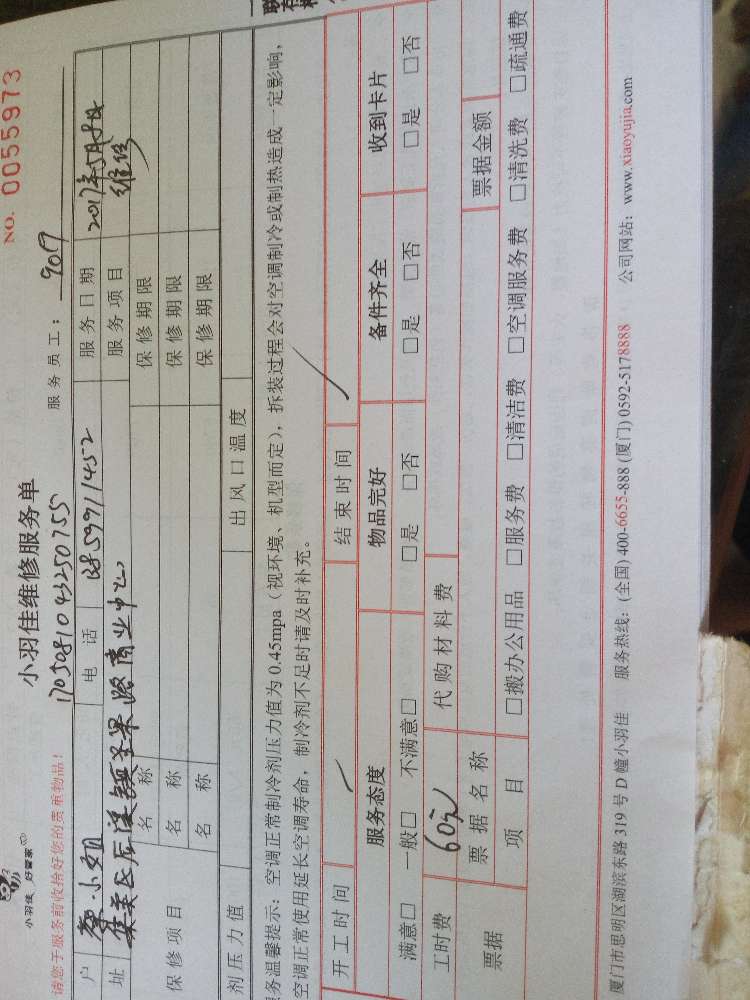 小羽佳 好管家
小羽佳维修服务单
NO. 0055973
请您于服务前收拾好您的贵重物品!
1705081043250755
服务员工: 9017
户 小姐 电话 13859911452 服务日期 2017年5月8日
址 集美区后溪镇 路商业中心 服务项目 维修
保修项目 名称 保修期限
名称 保修期限
名称 保修期限
剂压力值 出风口温度
务温馨提示: 空调正常制冷剂压力值为 0.45mpa(视环境、机型而定), 拆装过程会对空调制冷或制热造成一定影响,
空调正常使用延长空调寿命, 制冷剂不足时请及时补充。
开工时间 / 结束时间 /
服务态度 物品完好 备件齐全 收到卡片
满意□ 一般□ 不满意□ □是 □否 □是 □否 □是 □否
工时费 60元 代购材料费
票据 票据名称 票据金额
项目 □搬办公用品 □服务费 □清洁费 □空调服务费 □清洗费 □疏通费
厦门市思明区湖滨东路 319 号 D 幢小羽佳 服务热线: (全国) 400-6655-888 (厦门) 0592-5178888 公司网站: www.xiaoyujia.com